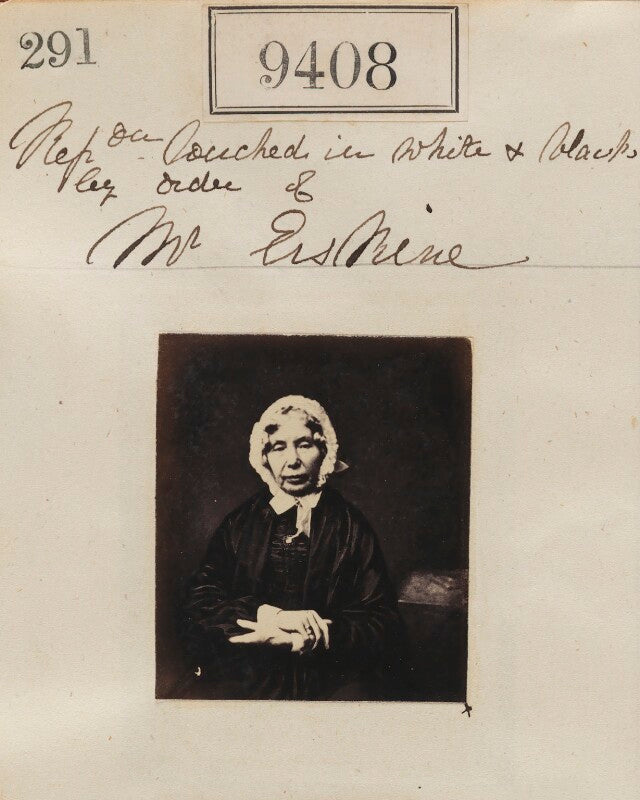 291
9408
Rep on touched in white & blacks
by order of
Mr Erskine